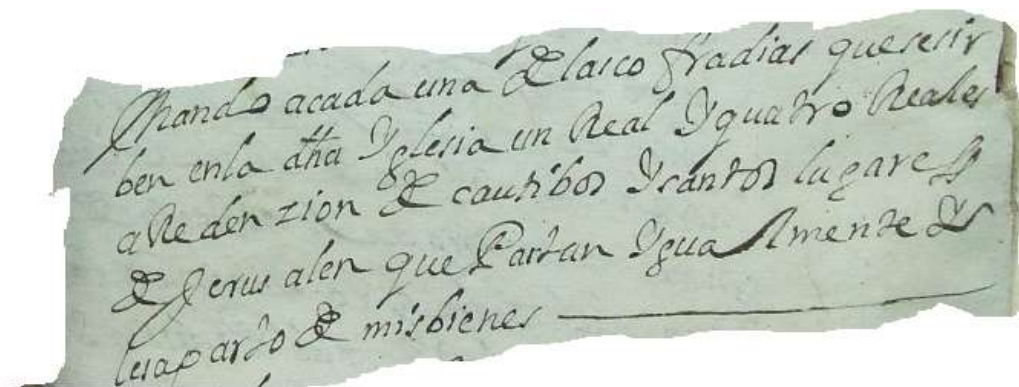 Mando acada una de lasco fradias que sesir
ben enla dha Yglesia un Real Y quatro Reales
a Redenzion de cautibos Y santos lugares
de Jerusalen que Partan Ygualmente Y
lesaparto de misbienes